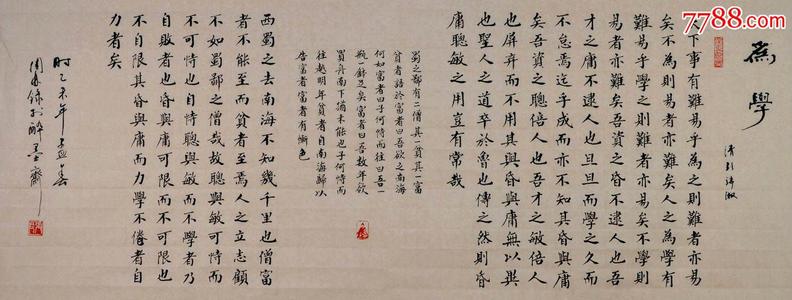 7788.com
為學
清彭端淑
天下事有難易乎為之則難者亦易
矣不為則易者亦難矣人之為學有
難易乎學之則難者亦易矣不學則
易者亦難矣吾資之昏不逮人也吾
才之庸不逮人也旦旦而學之久而
不怠焉迄乎成而亦不知其昏與庸
矣吾資之聰倍人也吾才之敏倍人
也屏弃而不用其與昏與庸無以異
也聖人之道卒於魯也傳之然則昏
庸聰敏之用豈有常哉
蜀之鄙有二僧其一貧其一富
貧者語於富者曰吾欲之南海
何如富者曰子何恃而往曰吾一
瓶一缽足矣富者曰吾數年欲
買舟南下猶未能也子何恃而
往越明年貧者自南海歸以
告富者富者有慚色
西蜀之去南海不知幾千里也僧富
者不能至而貧者至焉人之立志顧
不如蜀鄙之僧哉故聰與敏可恃而
不可恃也自恃聰與敏而不學者乃
自敗者也昏與庸可限而不可限也
不自限其昏與庸而力學不倦者自
力者矣
時乙未年孟春
周錄於醉墨齋